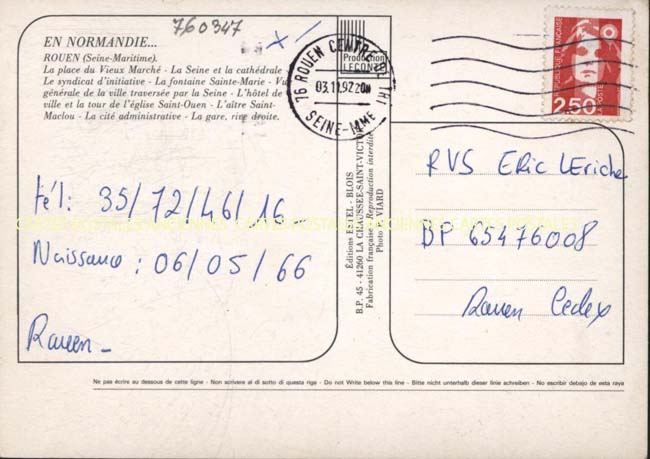 760347
EN NORMANDIE...
ROUEN (Seine-Maritime).
La place du Vieux Marché - La Seine et la cathédrale -
Le syndicat d'initiative - La fontaine Sainte-Marie - Vue
générale de la ville traversée par la Seine - L'hôtel de
ville et la tour de l'église Saint-Ouen - L'aître Saint-
Maclou - La cité administrative - La gare, rive droite.
Production
LECONTE
76 ROUEN CENTRE DE TRI
03.11.92 20H
SEINE-MME
2,50
tél: 35/72/46/16
Naissance : 06/05/66
Rouen
Éditions ESTEL - BLOIS
B.P. 45 - 41260 LA CHAUSSEE-SAINT-VICTOR
Fabrication française - Reproduction interdite
Photo P. VIARD
RVS Eric LEriche
BP 65476008
Rouen Cedex
Ne pas écrire au dessous de cette ligne - Non scrivere al di sotto di questa riga - Do not Write below this line - Bitte nicht unterhalb dieser linie schreiben - No escribir debajo de esta raya